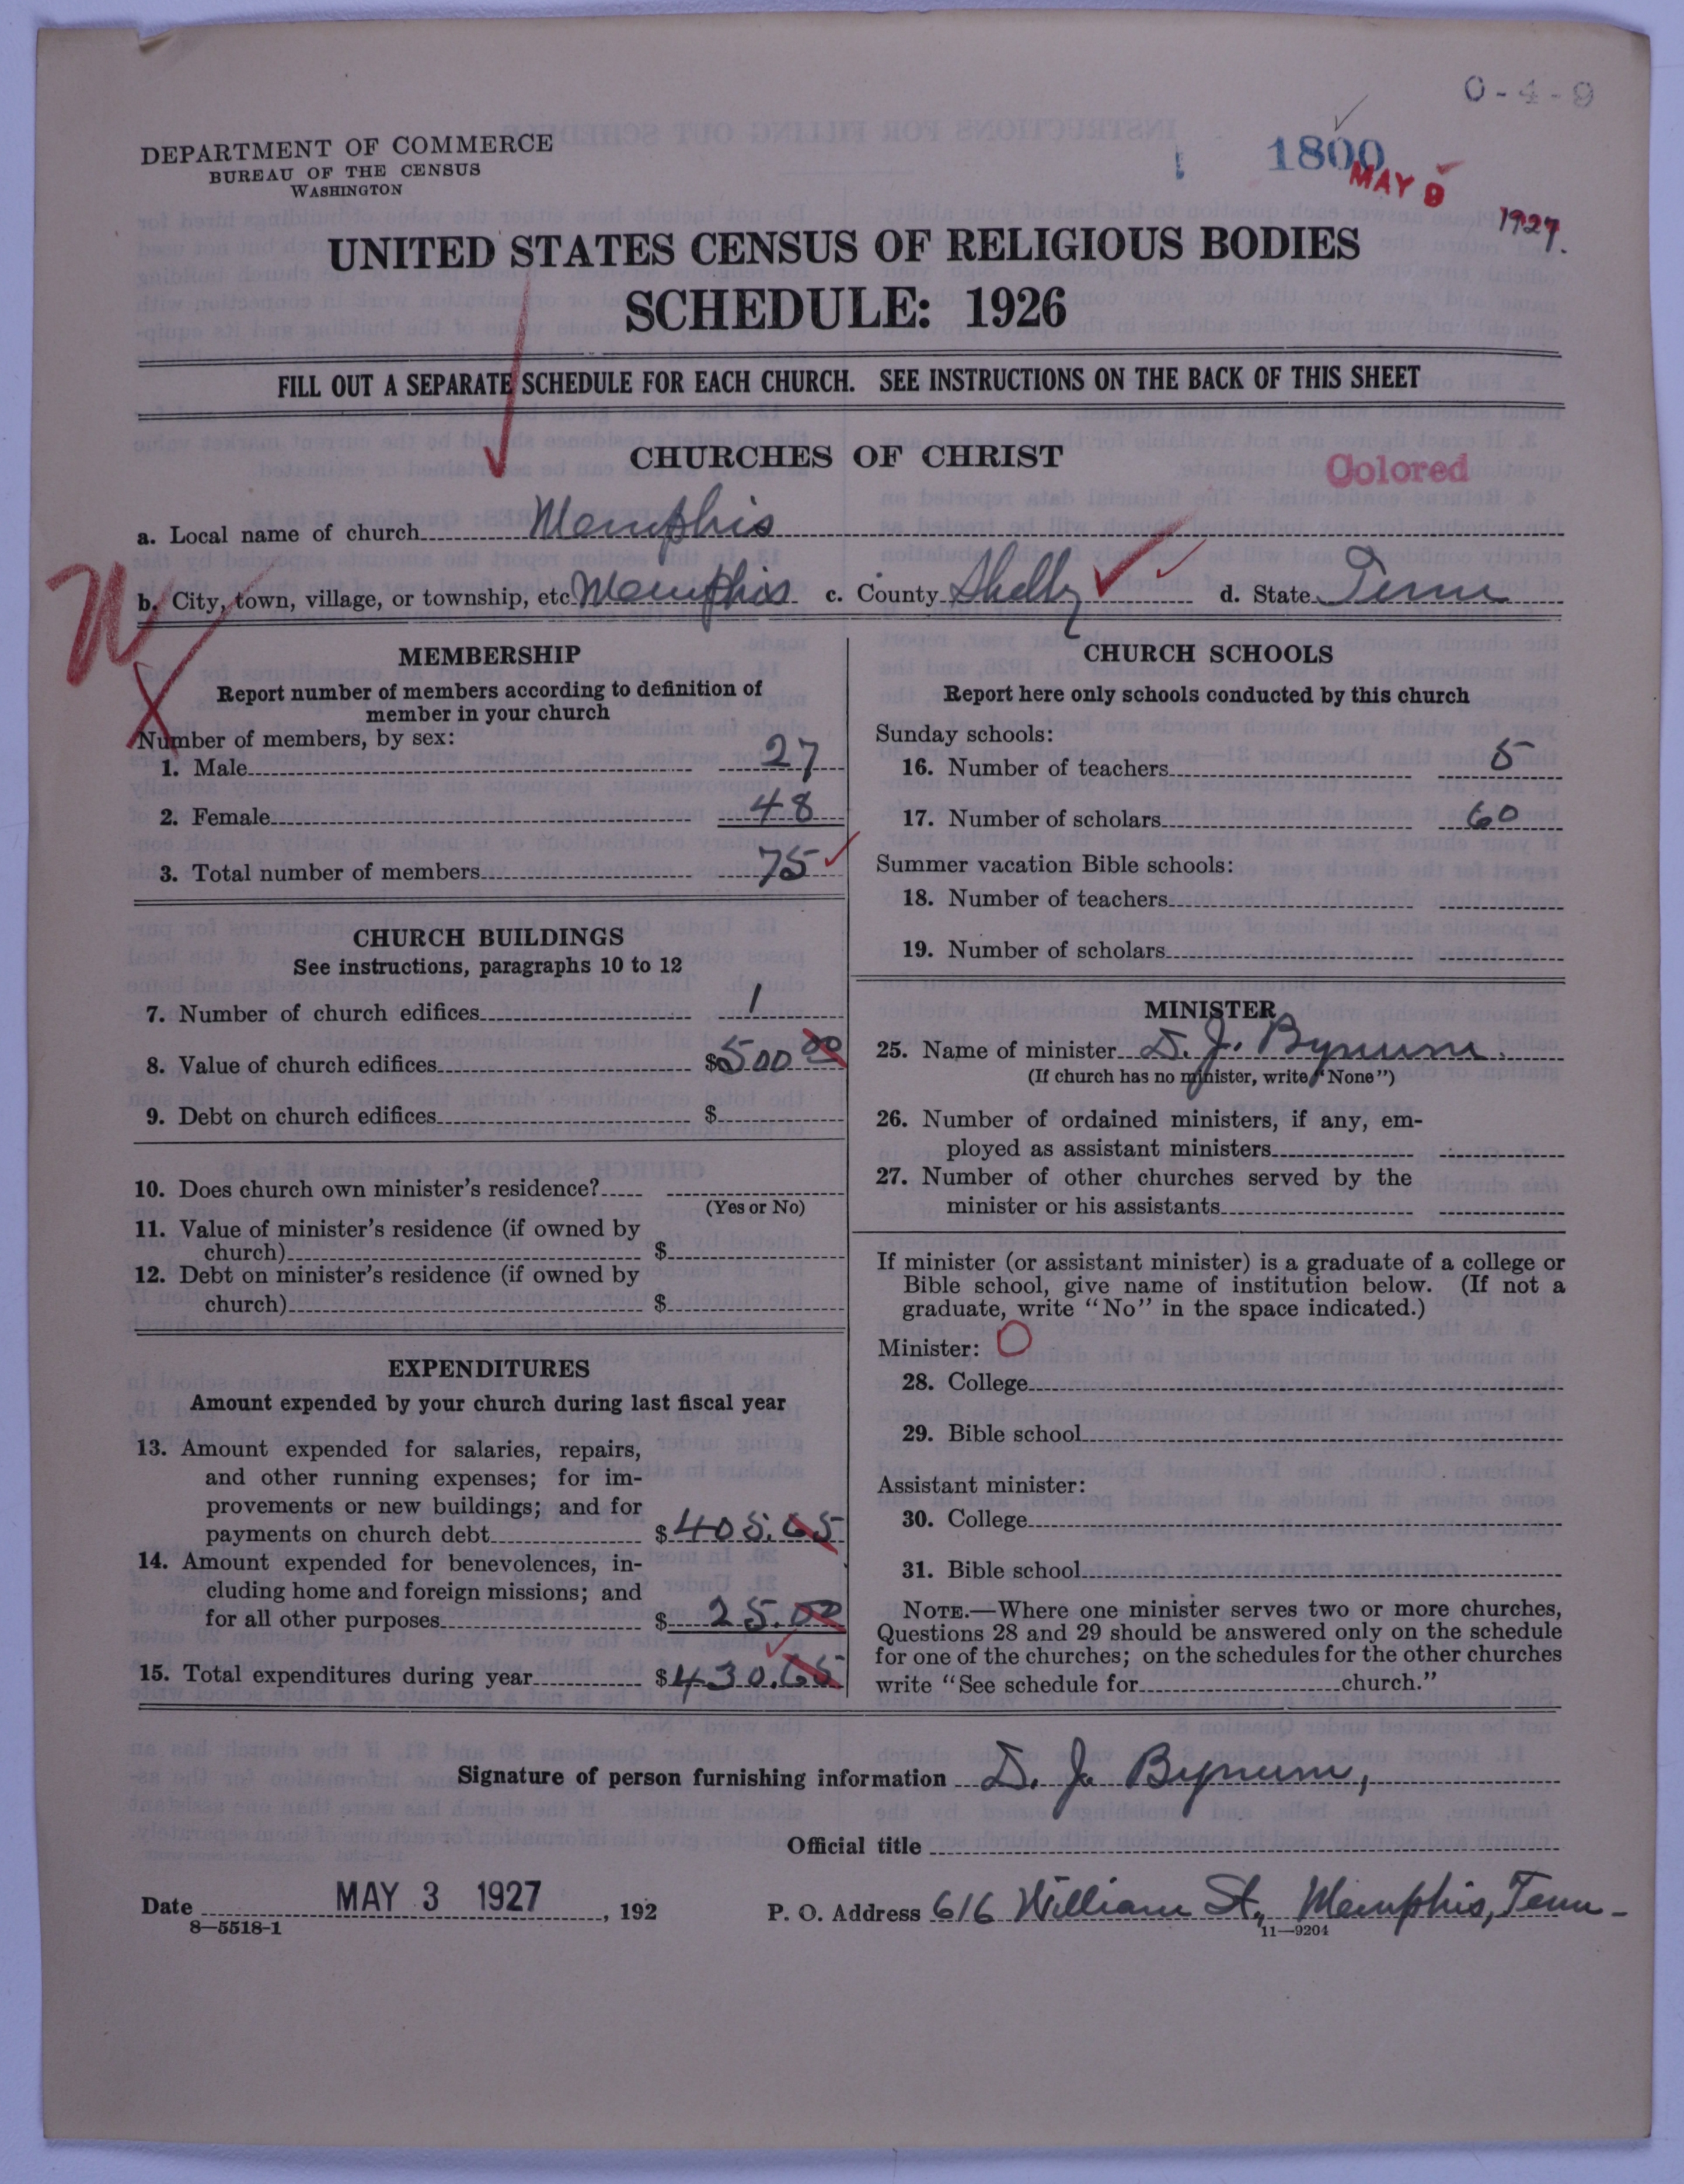 0-4-9
DEPARTMENT OF COMMERCE
BUREAU OF THE CENSUS
WASHINGTON
1800
MAY 9 1927.
UNITED STATES CENSUS OF RELIGIOUS BODIES
SCHEDULE: 1926
FILL OUT A SEPARATE SCHEDULE FOR EACH CHURCH. SEE INSTRUCTIONS ON THE BACK OF THIS SHEET
CHURCHES OF CHRIST
Colored
a. Local name of church Memphis
b. City, town, village, or township, etc. Memphis c. County Shelby d. State Tenn
MEMBERSHIP
Report number of members according to definition of
member in your church
Number of members, by sex:
1. Male 27
2. Female 48
3. Total number of members 75
CHURCH BUILDINGS
See instructions, paragraphs 10 to 12
7. Number of church edifices 1
8. Value of church edifices $500 00
9. Debt on church edifices $
10. Does church own minister's residence?
(Yes or No)
11. Value of minister's residence (if owned by
church) $
12. Debt on minister's residence (if owned by
church) $
EXPENDITURES
Amount expended by your church during last fiscal year
13. Amount expended for salaries, repairs,
and other running expenses; for im-
provements or new buildings; and for
payments on church debt $405.65
14. Amount expended for benevolences, in-
cluding home and foreign missions; and
for all other purposes $25.00
15. Total expenditures during year $430.65
CHURCH SCHOOLS
Report here only schools conducted by this church
Sunday schools:
16. Number of teachers 5
17. Number of scholars 60
Summer vacation Bible schools:
18. Number of teachers
19. Number of scholars
MINISTER
25. Name of minister D. J. Bynum.
(If church has no minister, write "None")
26. Number of ordained ministers, if any, em-
ployed as assistant ministers
27. Number of other churches served by the
minister or his assistants
If minister (or assistant minister) is a graduate of a college or
Bible school, give name of institution below. (If not a
graduate, write "No" in the space indicated.)
Minister: O
28. College
29. Bible school
Assistant minister:
30. College
31. Bible school
NOTE.—Where one minister serves two or more churches,
Questions 28 and 29 should be answered only on the schedule
for one of the churches; on the schedules for the other churches
write "See schedule for church."
Signature of person furnishing information D. J. Bynum,
Official title
Date MAY 3 1927, 192
P. O. Address 616 William St., Memphis, Tenn-
8—5518-1
11—9204